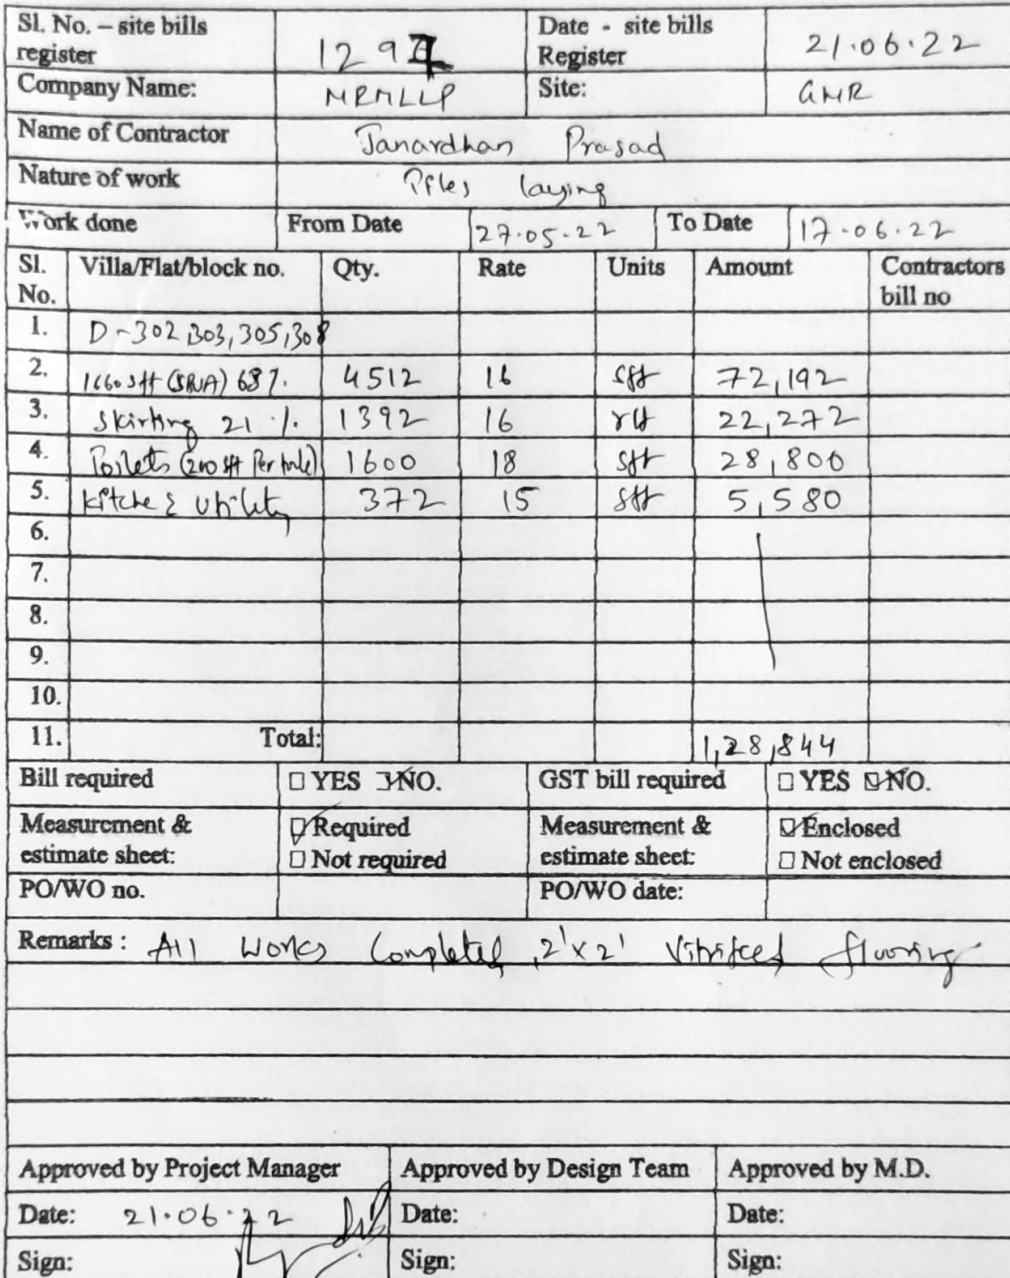 Sl. No. – site bills register 1297 Date - site bills Register 21.06.22
Company Name: MRMLLP Site: GMR
Name of Contractor Janardhan Prasad
Nature of work Tiles laying
Work done From Date 27.05.22 To Date 17.06.22
Sl. No. Villa/Flat/block no. Qty. Rate Units Amount Contractors bill no
1. D-302,303,305,308
2. 1660 sft (SBUA) 68%. 4512 16 sft 72,192
3. Skirting 21 %. 1392 16 rft 22,272
4. Toilets (200 sft Per) 1600 18 sft 28,800
5. Kitche & utility 372 15 sft 5,580
6.
7.
8.
9.
10.
11. Total: 1,28,844
Bill required YES NO. GST bill required YES NO.
Measurement & estimate sheet: Required Measurement & estimate sheet: Enclosed
Not required Not enclosed
PO/WO no. PO/WO date:
Remarks : All works Completed, 2'x2' Vitrified flooring
Approved by Project Manager Approved by Design Team Approved by M.D.
Date: 21.06.22 Date: Date:
Sign: Sign: Sign: